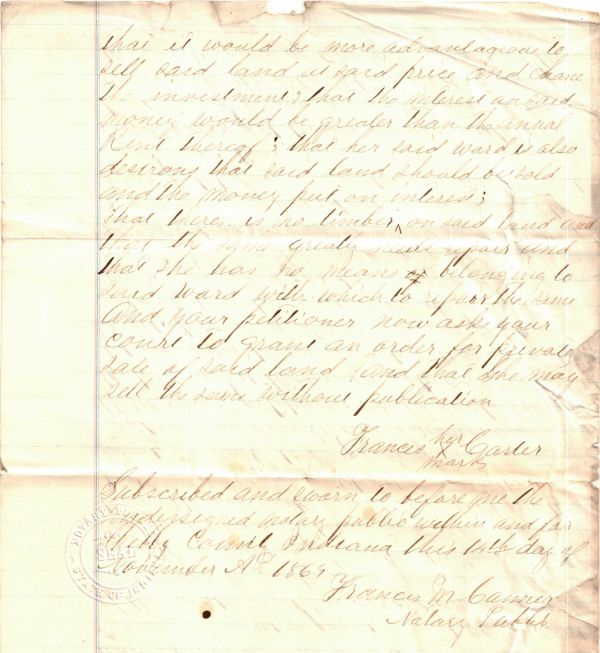 that it would be more advantagious to
sell said land at said price and chane
the investment; that the interest on said
money would be greater than the anual
Rent thereof; that her said ward is also
desirous that said land should be sold
and the money put on interest;
that theres is no timber, on said land and
that the same greatly needs repair and
that she has no means of belonging to
said ward with which to repair the same
And your petitioner now asks your
court to grant an order for private
sale of said land and that she may
sell the same without publication
Francis her Carter
mark
Subscribed and sworn to before me the
undersigned notary public within and for
Shelby County Indiana this 14th day of
November AD
Francis M
Notary Public
NOTARY
SEAL
STATE OF